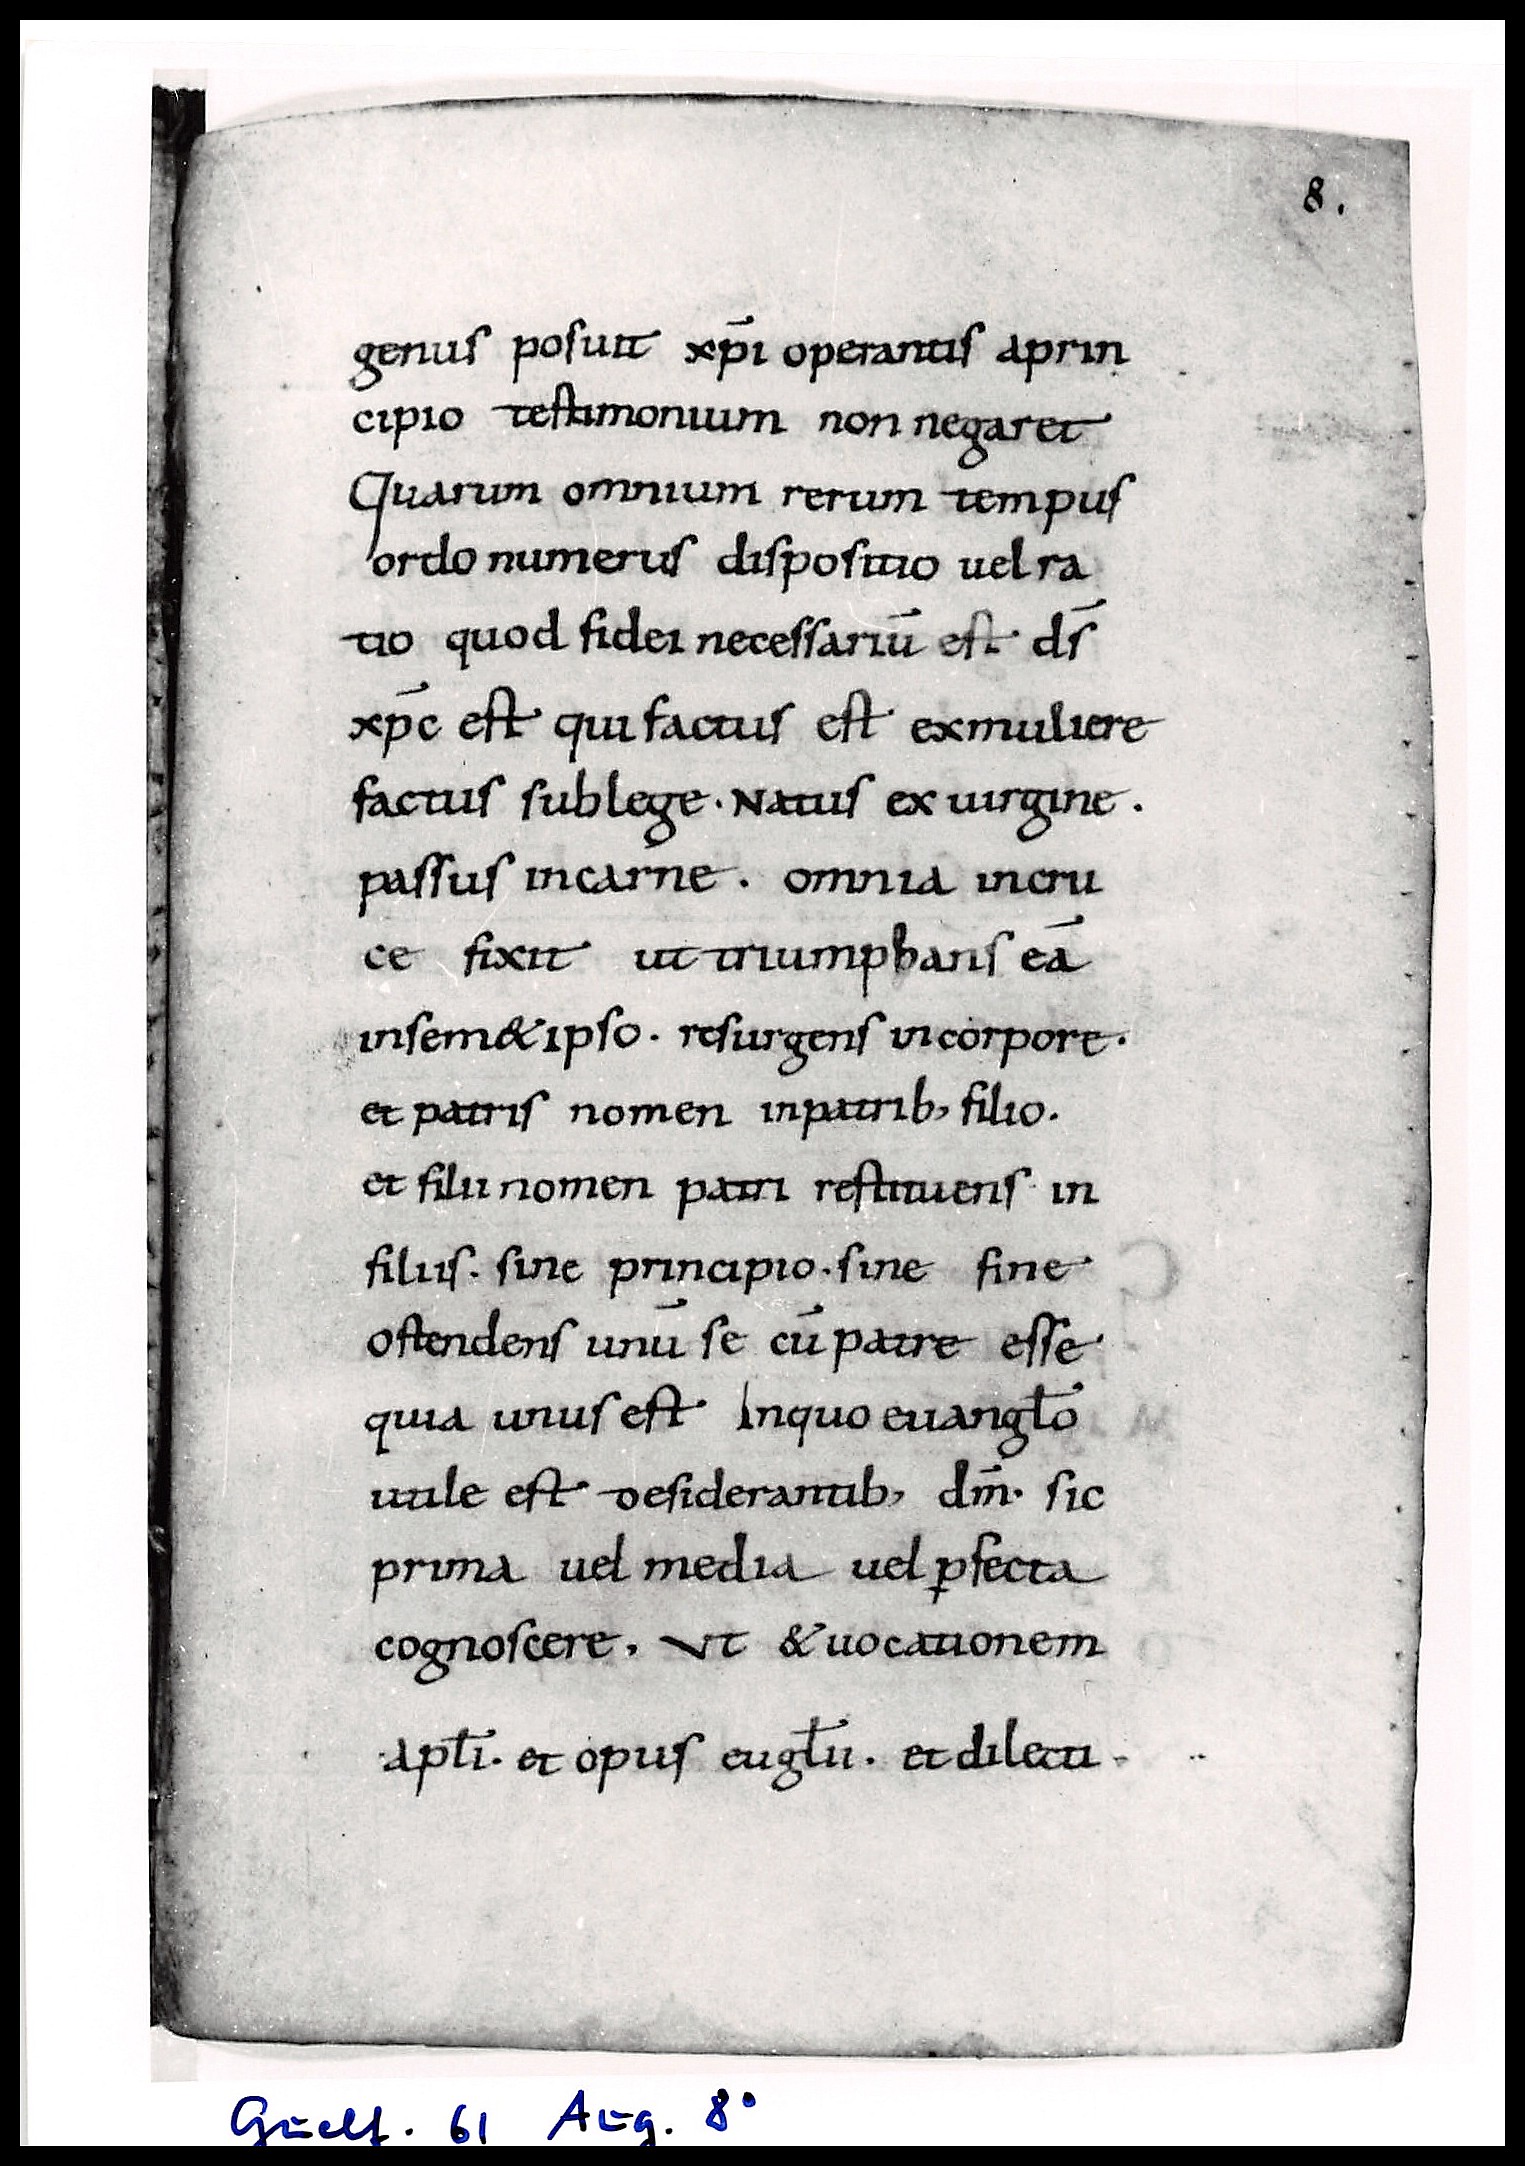 8.
genus posuit xp̄i operantis aprin
cipio testimonium non negaret
Quarum omnium rerum tempus
ordo numerus dispositio uel ra
tio quod fidei necessariū est ds̄
xp̄c est qui factus est exmuliere
factus sublege. Natus ex uirgine.
passus incarne. omnia incru
ce fixit ut triumphans eā
insem&ipso. resurgens in corpore.
et patris nomen inpatrib, filio.
et filii nomen patri restituens in
filiis. sine principio. sine fine
ostendens unū se cū patre esse
quia unus est Inquo euangl̄o
utile est desiderantib, dm̄. sic
prima uel media uel ꝑfecta
cognoscere, Ut & uocationem
apl̄i. et opus eugl̄ii. et dilecti
Guelf. 61 Aug. 8°